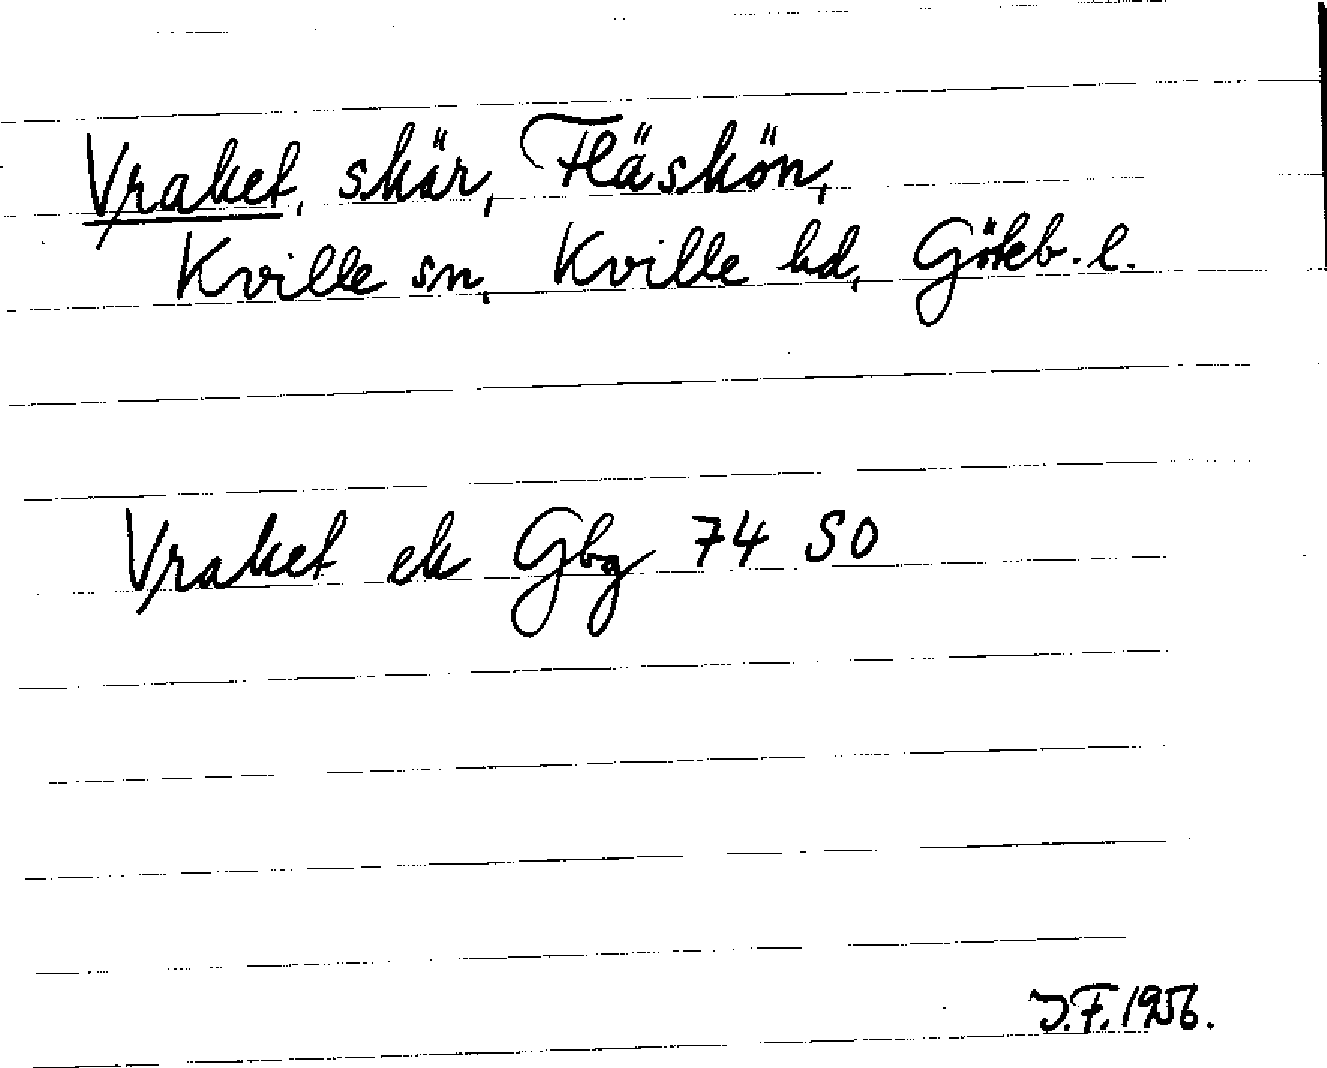 Vraket, skär, Fläskön,
Kville sn, Kville hd, Göteb. l.
Vraket ek Gbg 74 SO
J.F. 1956.